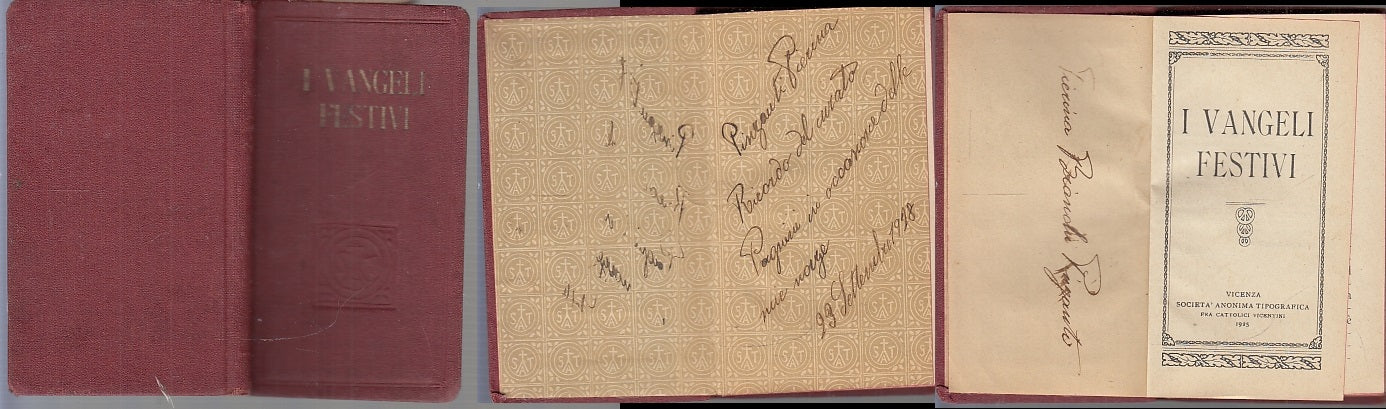 I VANGELI
FESTIVI
Pinzauti Pierina
Ricordo del curato
Pagnini in occasione delle
sue nozze
23 Settembre 1928
Pierina
I VANGELI
FESTIVI
VICENZA
SOCIETA' ANONIMA TIPOGRAFICA
FRA CATTOLICI VICENTINI
1925